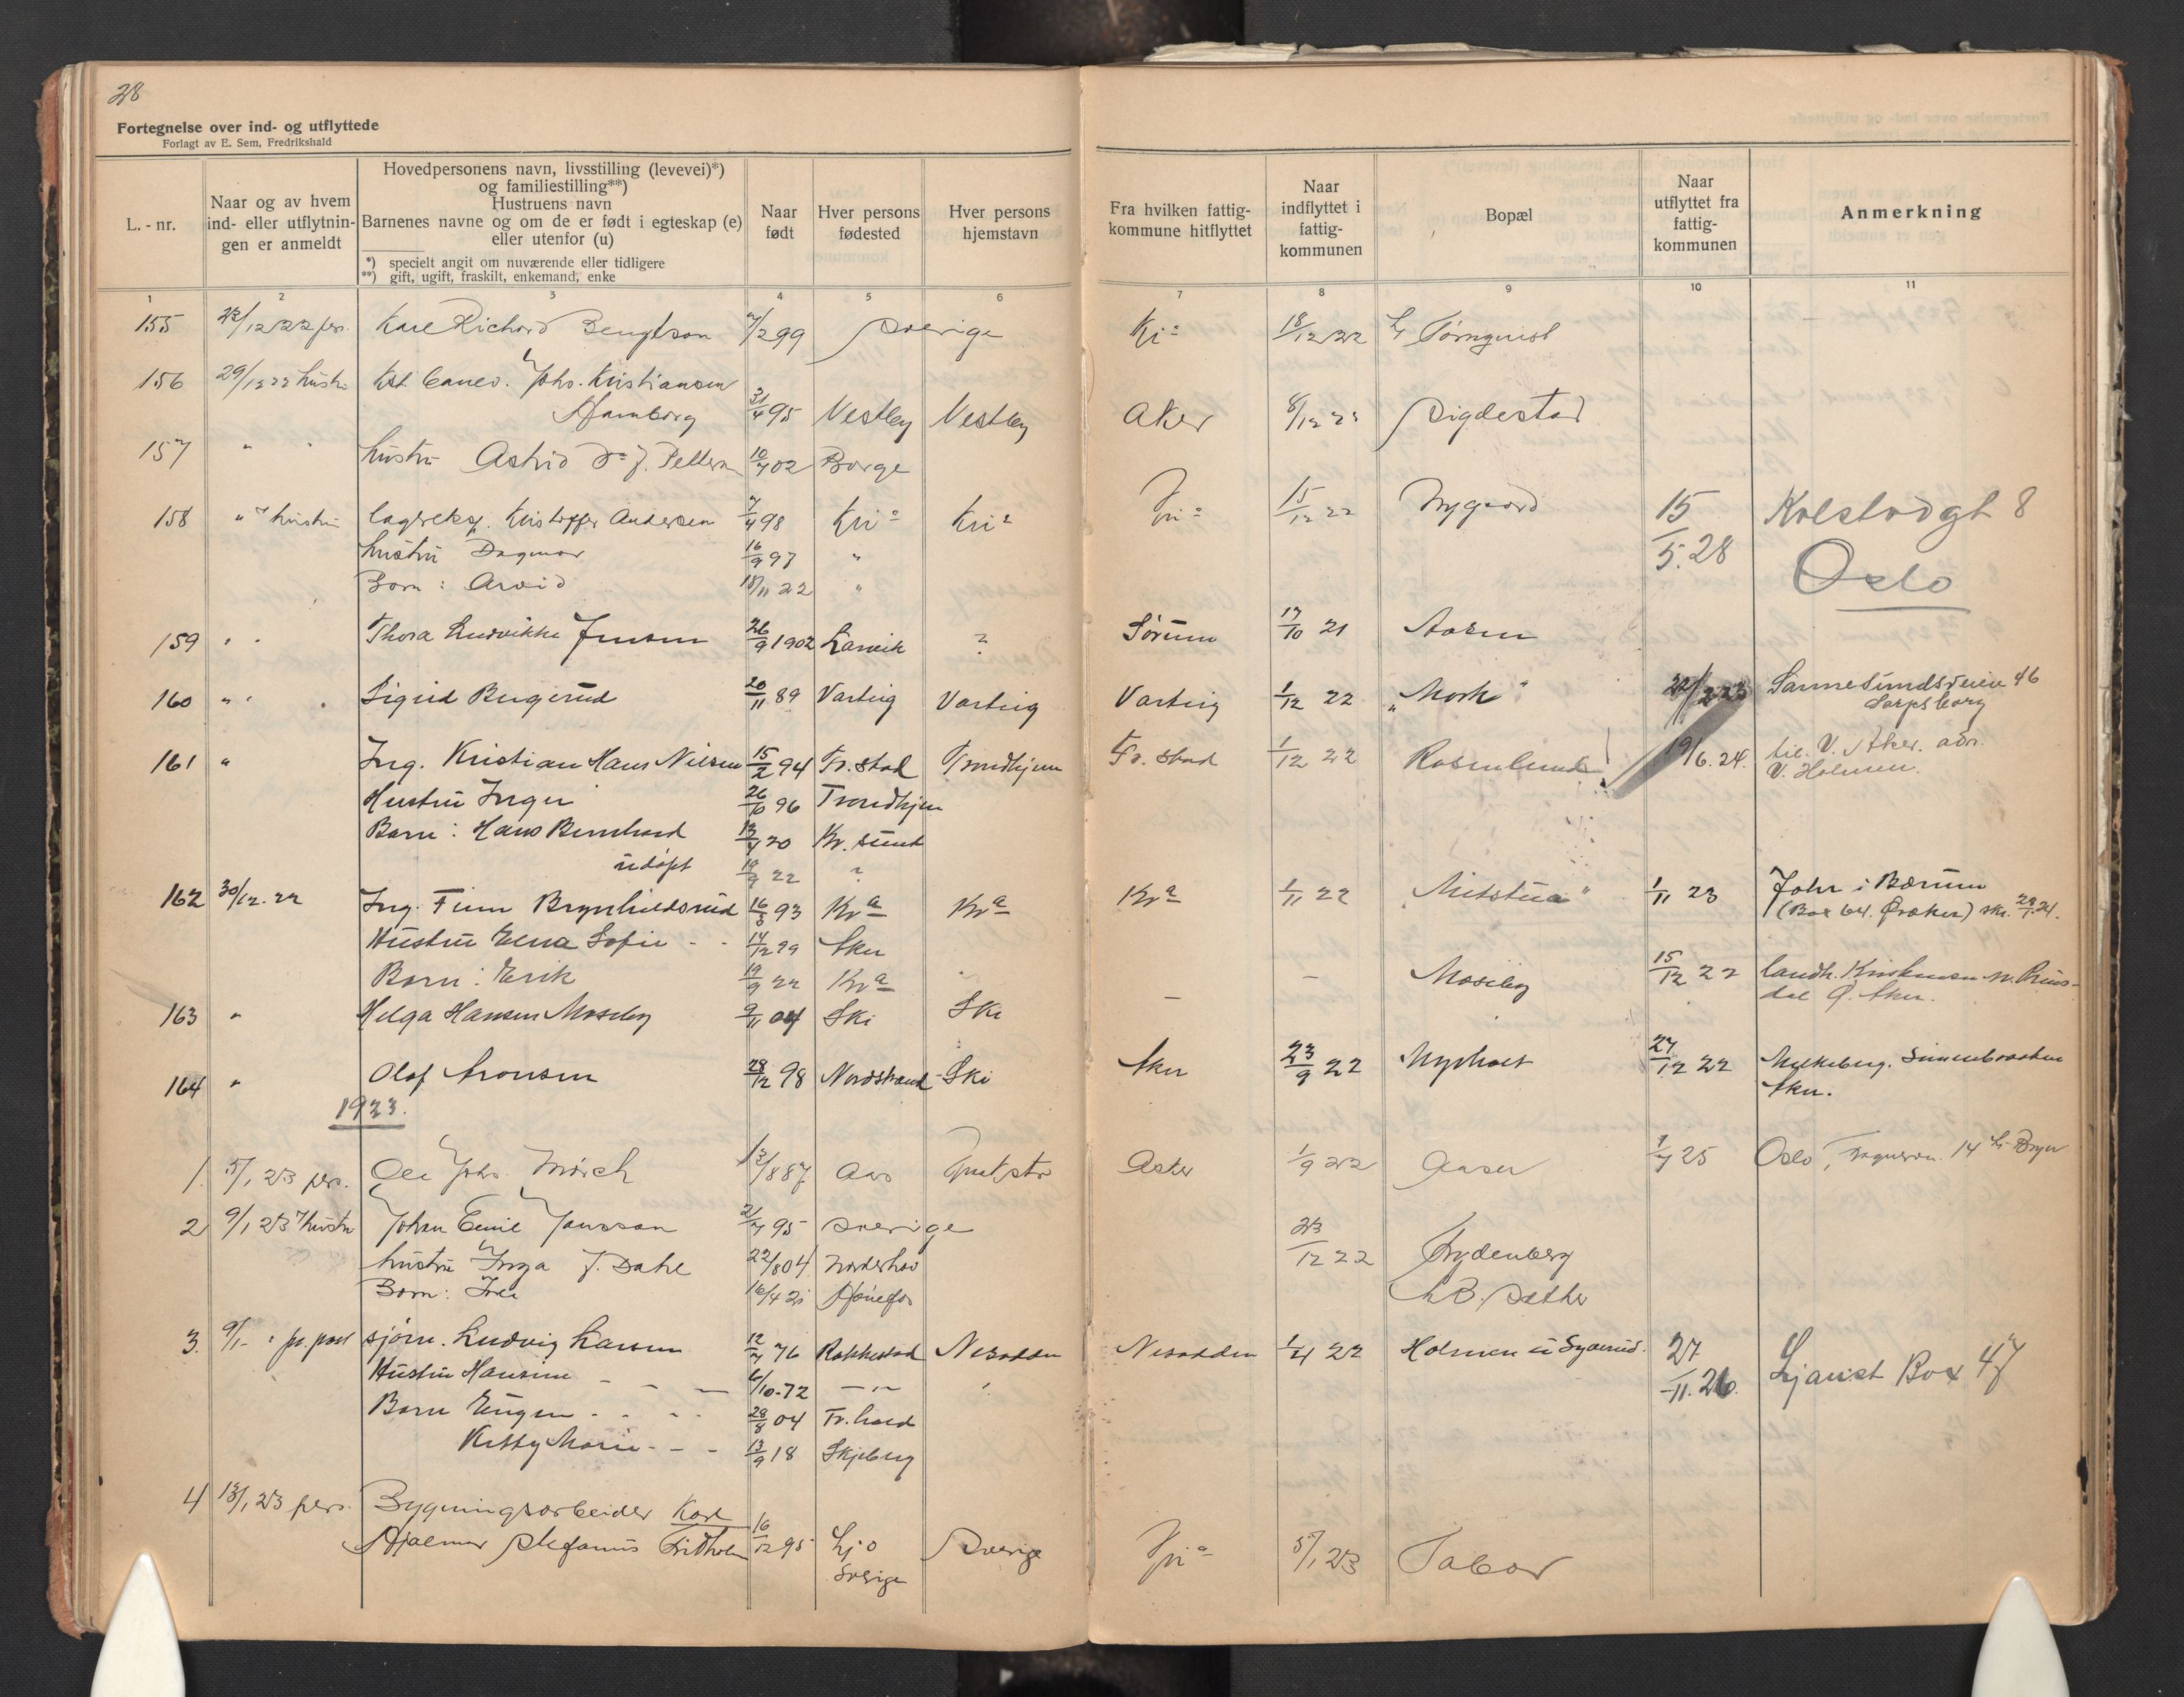 28
Fortegnelse over ind- og utflyttede
Forlagt av E. Sem, Fredrikshald
L.-nr.
Naar og av hvem ind- eller utflytnin-gen er anmeldt
Hovedpersonens navn, livsstilling (levevei)*)
og familiestilling**)
Hustruens navn
Barnenes navne og om de er født i egteskap (e)
eller utenfor (u)
*) specielt angit om nuværende eller tidligere
**) gift, ugift, fraskilt, enkemand, enke
Naar født
Hver persons fødested
Hver persons hjemstavn
Fra hvilken fattig-kommune hitflyttet
Naar indflyttet i fattig-kommunen
Bopæl
Naar utflyttet fra fattig-kommunen
Anmerkning
1 2 3 4 5 6 7 8 9 10 11
155 22/12 22 pers. Karl Richard Bengtson 7/2 99 Sverige Kr a 18/12 22 Hr Törnquist
156 29/12 22 hustru Johs. Kristiansen
Hamborg 95 Vestby Vestby Aker 8/12 22 Sigdestad
157 " " hustru Astrid J. 02 Borge
158 " hustru Kristoffer Andersen 7/4 98 Kria Kria Kria 15/12 22 Nygaard 15/5.28 Kolstadgt 8
hustru Dagmar 16/9 97 "
Barn: Arvid 18/11 22 " Oslo
159 " " Thora Ludvikke Jensen 26/9 1902 Larvik ? Sørum 17/10 21 Aasen
160 " " Sigrid Bergerud 20/11 89 Varteig Varteig Varteig 1/12 22 "Mork" 22/2 23 Sannesundsveien 46
Sarpsborg
161 " Ing. Kristian Hans Nilsen 15/2 94 Fr.stad Trondhjem Fr.stad 1/12 22 Rosenlund 19/6.24. til V. Aker. adr.
V. Holmen.
Hustru Inger 26/10 96 Trondhjem
Barn: Hans Bernhard 20 Kr.sund
udøpt 19/9 22 ?
162 30/12.22 Ing. Finn Brynhildsrud 16/3 93 Kra Kra Kra 1/11 22 "Nitstua" 1/11 23 Jahr i Bærum
(Box 64. Øraker) skr. 24.
Hustru Elna Sofie - - 14/12 99 Aker
Barn: Erik 19/9 22 Kra
163 " Helga Hansen Moseby 9/11 04 Ski Ski - - Moseby 15/12 22 landh. Kristensen Prins-
dal Ø. Aker.
164 " Olaf Aronsen 28/12 98 Nordstrand Ski Aker 23/9 22 Nyholt 27/12 22
Aker.
1923.
1. 5/1 23 pers. Ole Johs. Mörch 13/8 87 Aas Aker 1/9 22 Aaser 1/7 25 Oslo, 14
2 9/1 23 hustru Johan Emil Jansson 2/7 95 Sverige 23/12 22 Frydenberg
hustru Inga f. Dahl 22/8 04 Norderhov
Barn: 16/4 21 Hønefos
3. 9/1 - " pr. post sjøm. Ludvig Larsen 12/7 76 Rakkestad Nesodden Nesodden 1/4 22 Holmen 27/11.26. Ljanst Box 47
Hustru Hansine - - - 6/10-72 - " -
Barn Eugen - - - 28/8 04 Fr.hald
Kitty Marie - - - 13/9 18 Skjeberg
4 13/1 23 pers. Bygningsarbeider Karl
Hjalmar Stefanus Fridholm 16/12 95 Hjo Sverige Kria 5/1 23 Tabor
Sverige